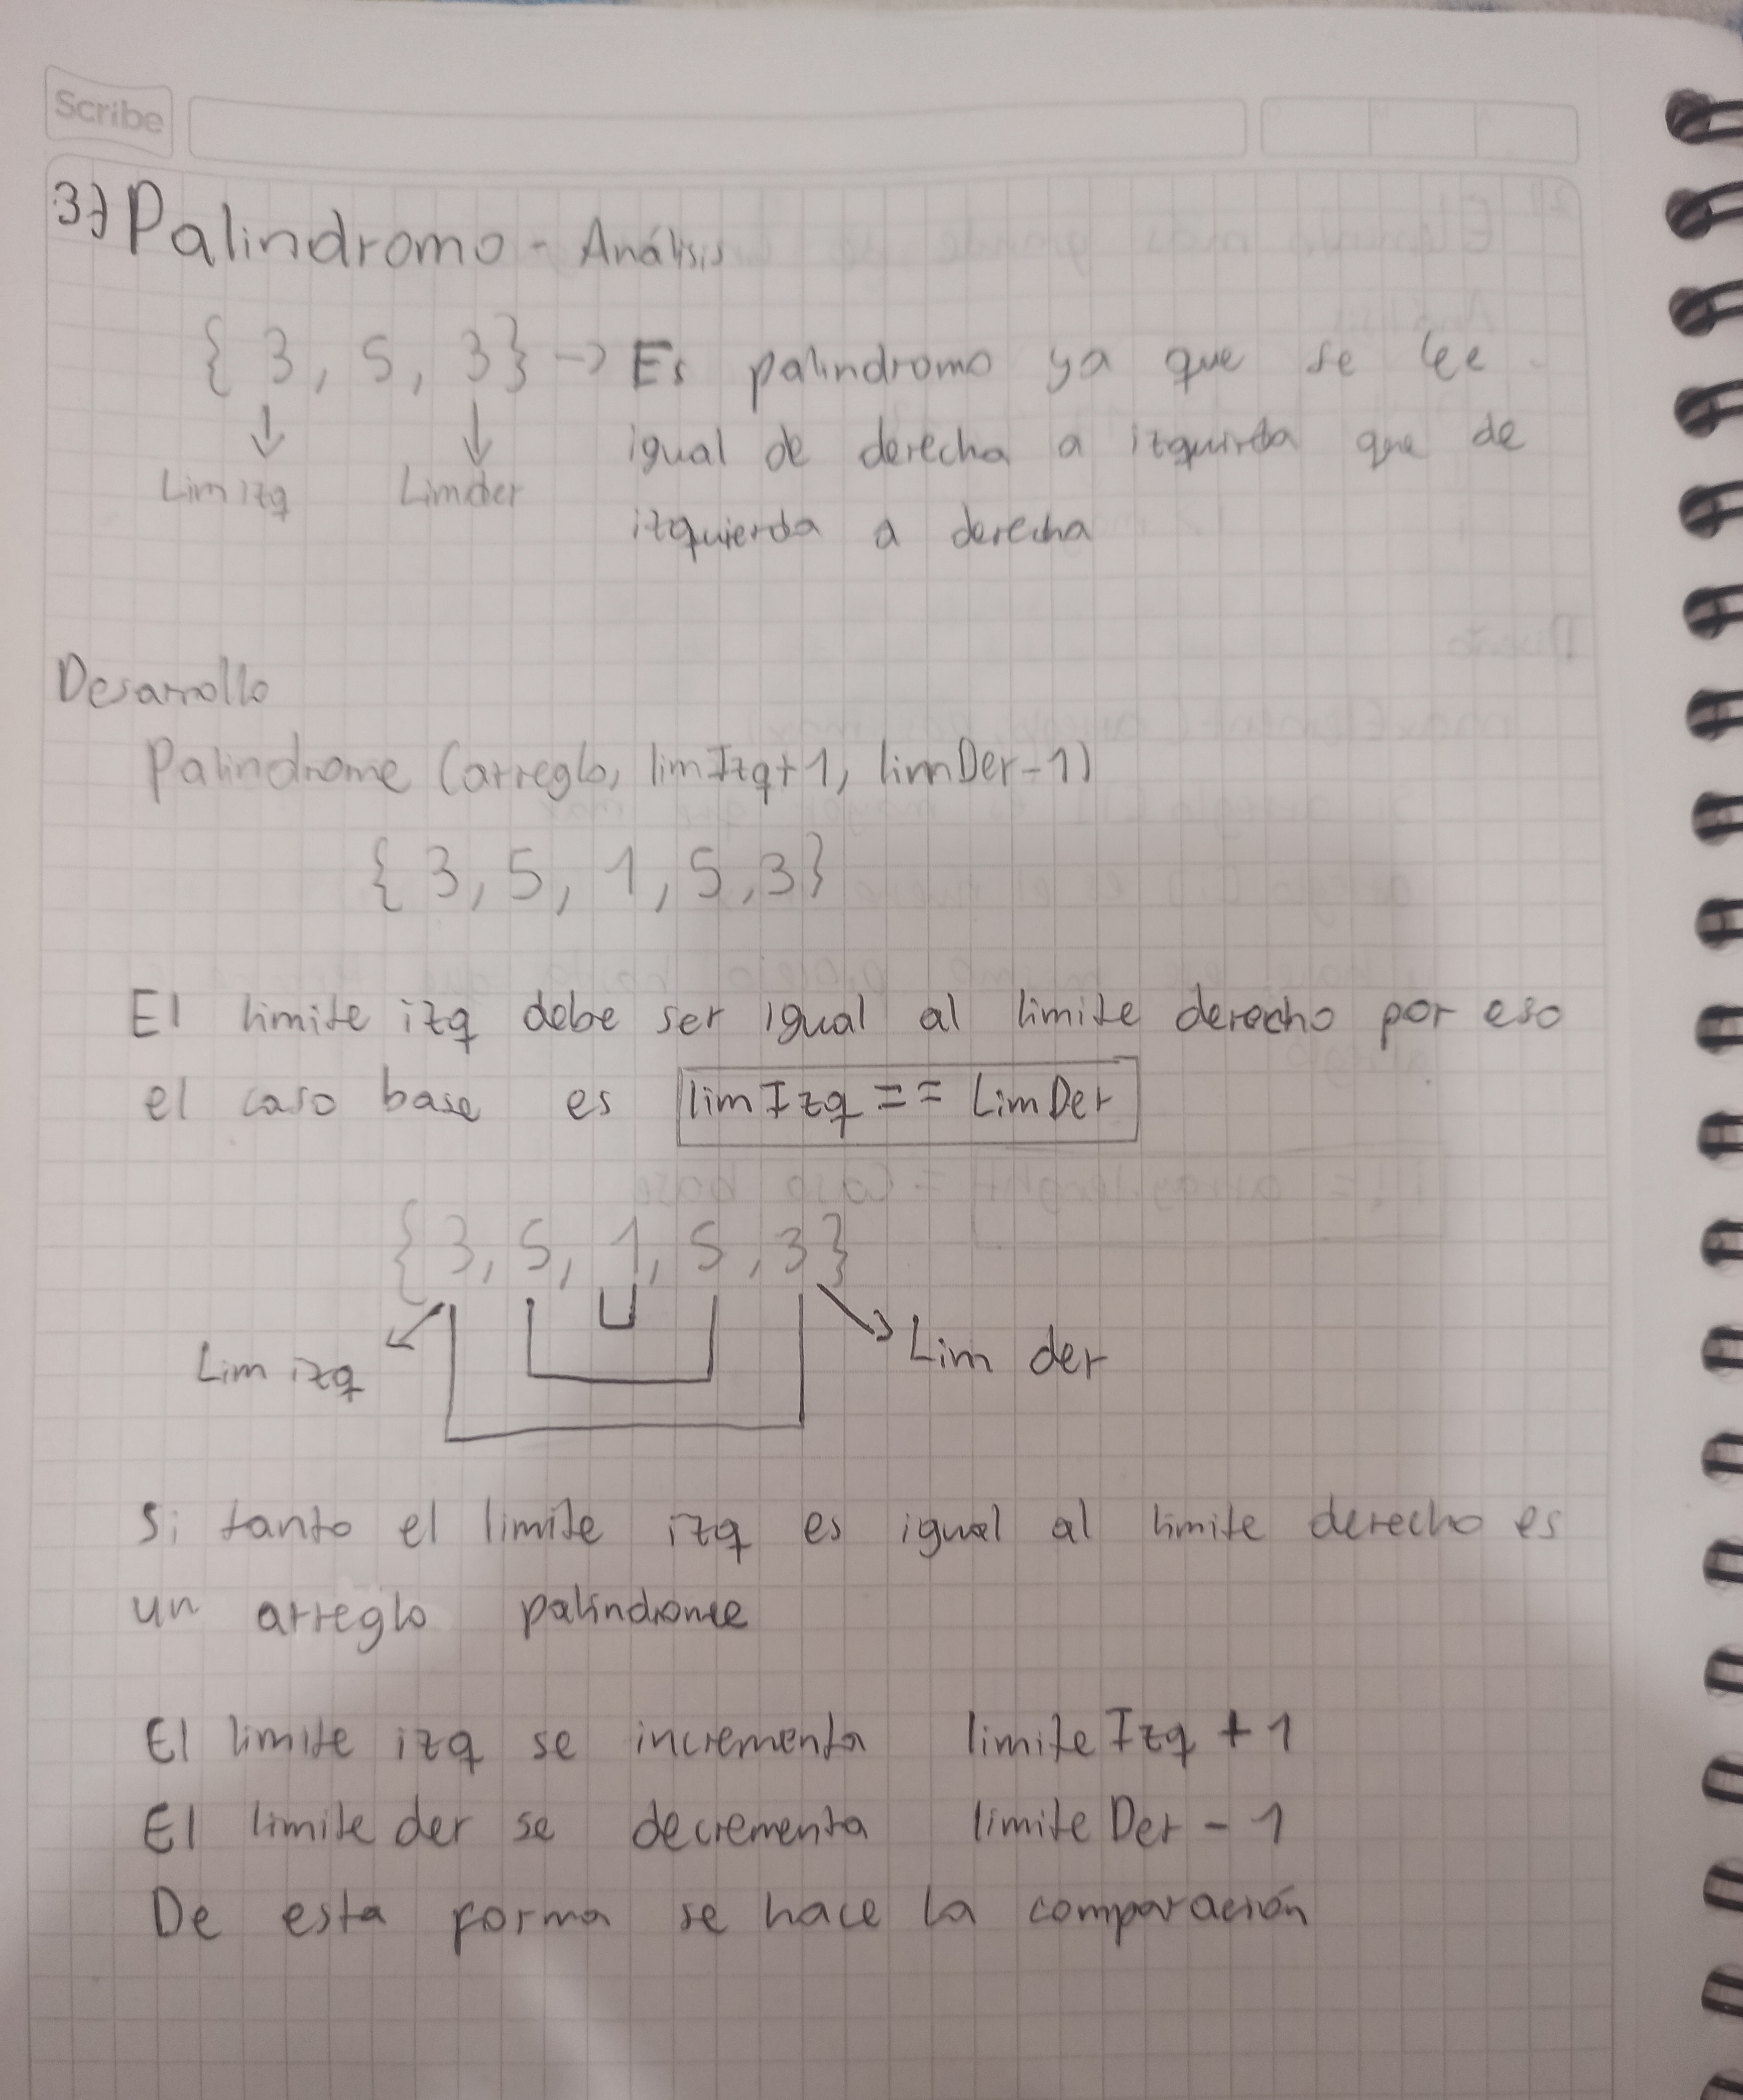 Scribe
3) Palindromo - Análisis
{ 3, 5, 3 } -> Es palindromo ya que se lee
igual de derecha a izquirda que de
izquierda a derecha
Lim izq Lim der
Desarrollo
Palindrome (arreglo, limIzq+1, limDer-1)
{ 3, 5, 1, 5, 3 }
El limite izq debe ser igual al limite derecho por eso
el caso base es limIzq == LimDer
{ 3, 5, 1, 5, 3 }
Lim izq Lim der
Si tanto el limite izq es igual al limite derecho es
un arreglo palindrome
El limite izq se incrementa limite Izq + 1
El limite der se decrementa limite Der - 1
De esta forma se hace la comparación